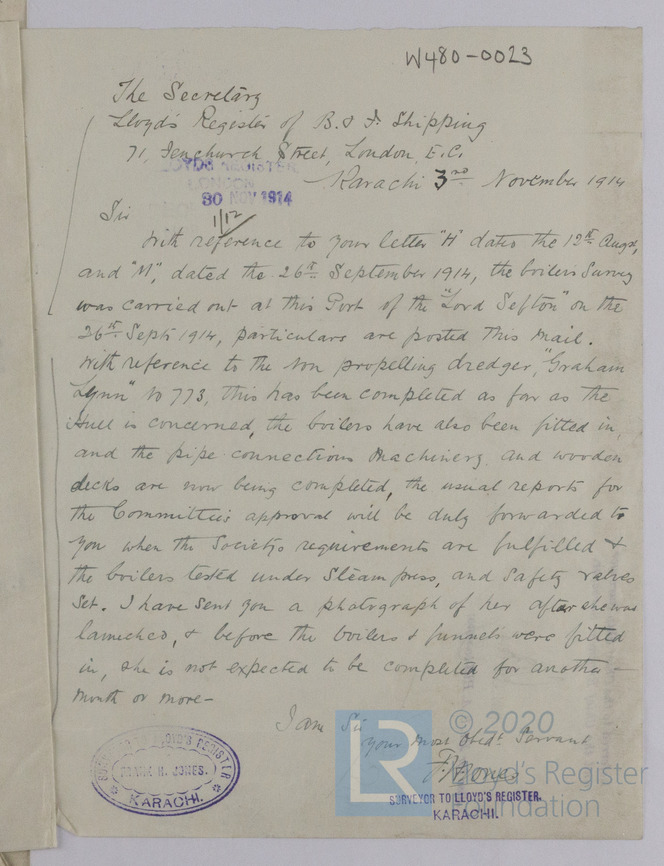 W480-0023
The Secretary
Lloyd's Register of B. & F. Shipping
71, Fenchurch Street, London, E.C.
LLOYDS REGISTER
LONDON
30 NOV 1914
Karachi 3rd November 1914
1/12
Sir
With reference to your letter "H" dated the 13th Augst,
and "M", dated the 26th September 1914, the boilers Survey
was carried out at this Port of the "Lord Sefton" on the
26th Septr 1914, particulars are posted this mail.
With reference to the Non propelling dredger, "Graham
Lynn" No 773, this has been completed as far as the
Hull is concerned, the boilers have also been fitted in,
and the pipe connections Machinery and wooden
decks are now being completed, the usual reports for
the Committee's approval will be duly forwarded to
you when the Society's requirements are fulfilled &
the boilers tested under Steam press, and Safety valves
Set. I have sent you a photograph of her after she was
launched, & before the boilers & funnels were fitted
in, she is not expected to be completed for another
month or more -
I am Sir
Your Most Obedt Servant
F H Jones
SURVEYOR TO LLOYD'S REGISTER.
KARACHI.
SURVEYOR TO LLOYD'S REGISTER
FRANK H. JONES.
KARACHI.
LR
© 2020
Lloyd's Register
Foundation